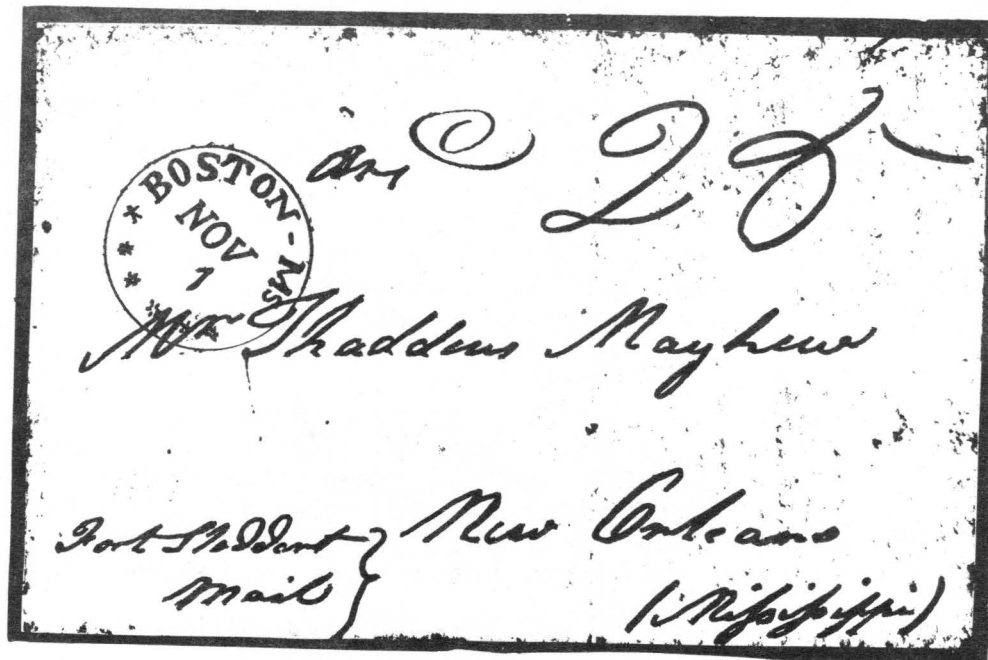 BOSTON - Ms
NOV
1
25
Mr Thaddeus Mayhew
New Orleans
(Mississippi)
Fort Stoddert
Mail